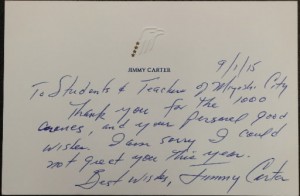 JIMMY CARTER
9/1/15
To Students & Teachers of Miyoshi City
Thank you for the 1000
cranes, and your personal good
wishes. I am sorry I could
not greet you this year.
Best Wishes, Jimmy Carter